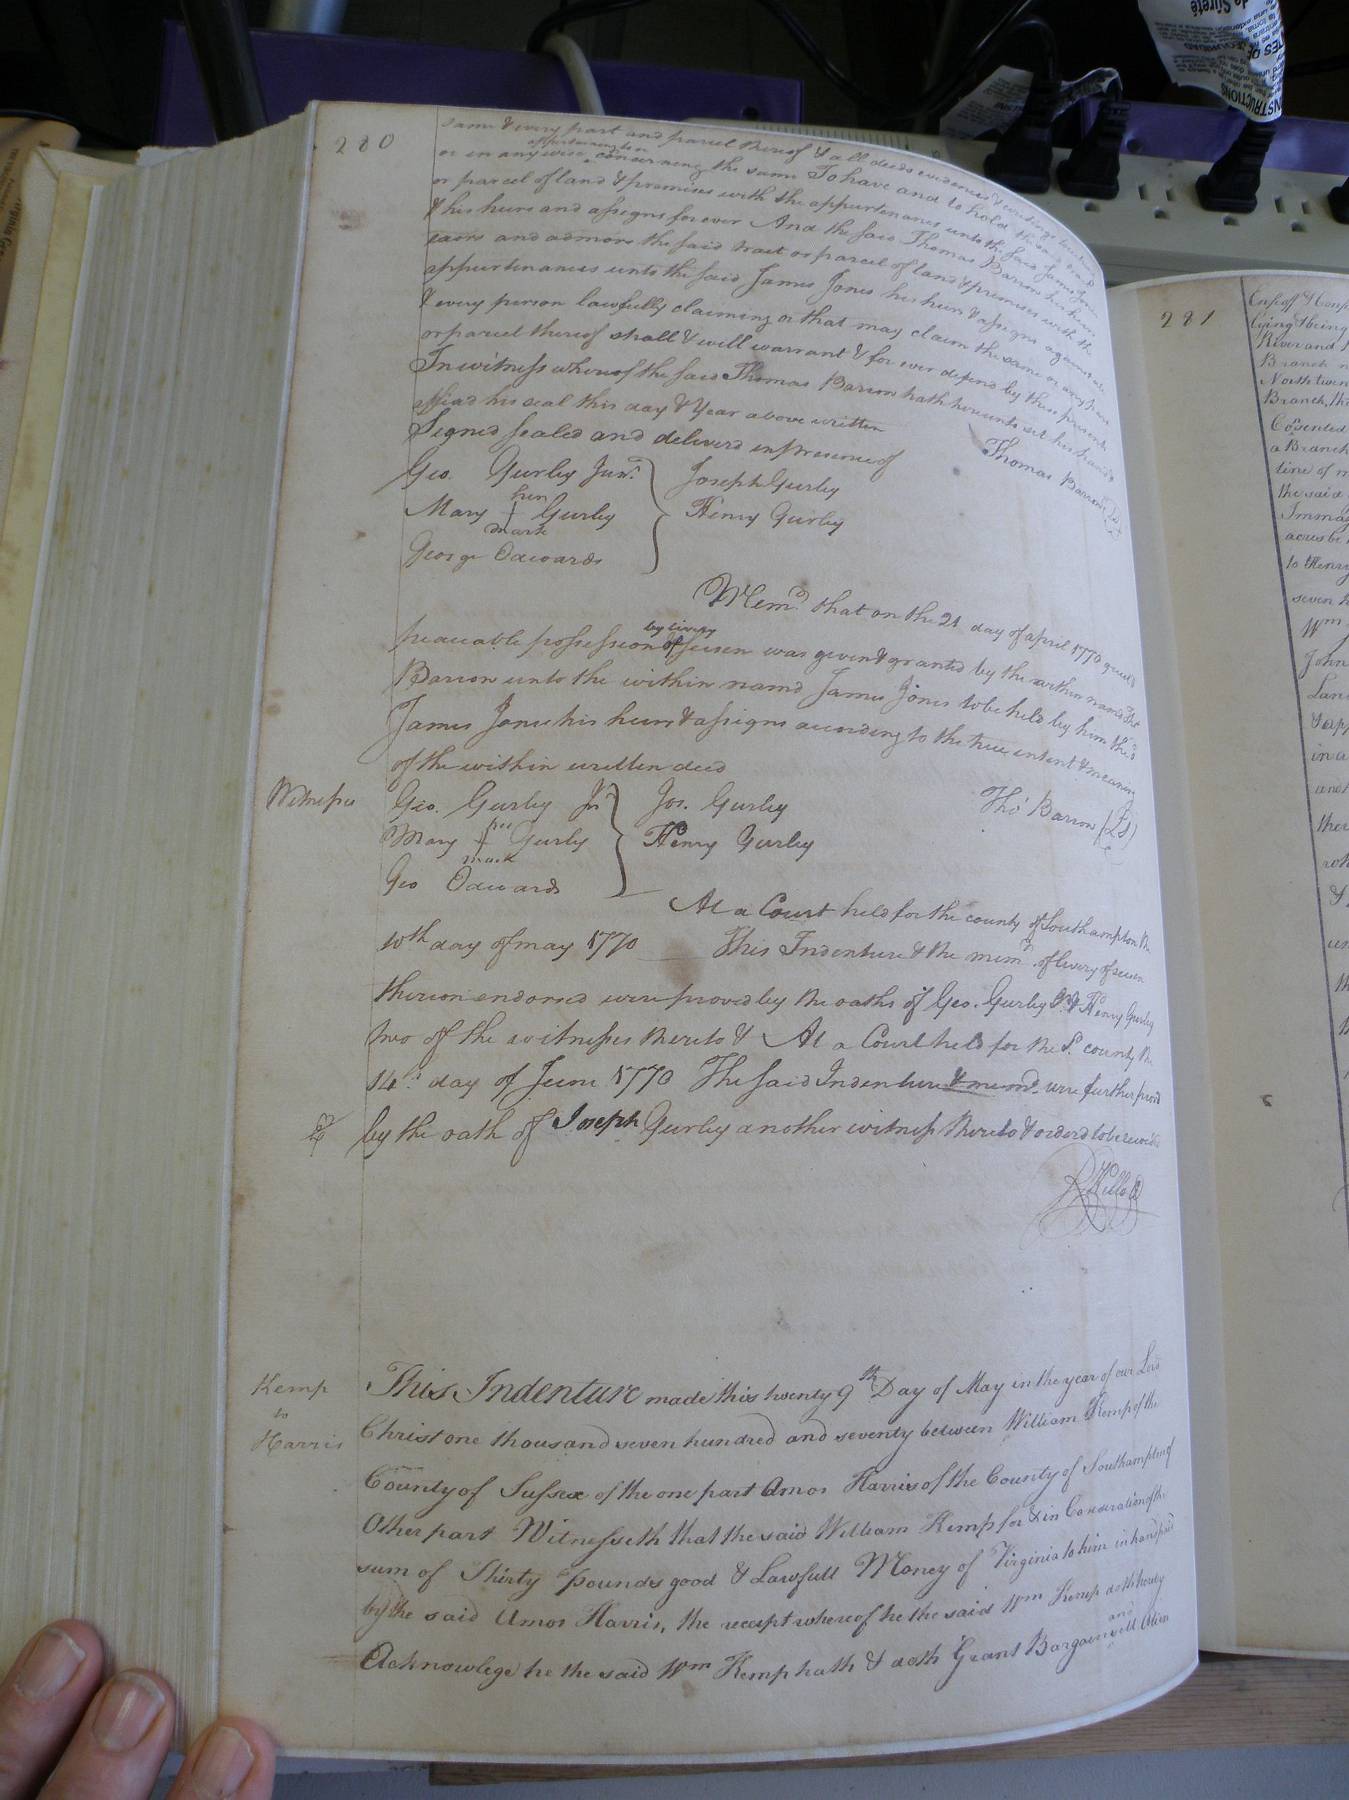 280
same & every part and parcel thereof & all deeds evidences & writings touching
appertaining to or
or in any wise concerning the same To have and to hold the said tract
or parcel of land & premises with the appurtenances unto the said James Jones
& his heirs and assigns for ever And the said Thomas Barrow his heirs
and admors the said tract or parcel of land & premises with the
appurtenances unto the said James Jones his heirs & assigns against all
& every person lawfully claiming or that may claim the same or any part
or parcel thereof shall & will warrant & for ever defend by these presents
In witness whereof the said Thomas Barrow hath hereunto set his hand &
affixd his seal this day & Year above written
Signed sealed and deliverd in presence of
Thomas Barrow
Geo. Gurley Junr. Joseph Gurley
her
Mary + Gurley Henry Gurley
mark
George Edwards
Memd. that on the 21 day of april 1770 quiet &
by livery
peaceable possession of seisen was given & granted by the within named Tho
Barrow unto the within namd James Jones to be held by him the sd
James Jones his heirs & assigns according to the true intent & meaning
of the within written deed
Witnesses Geo. Gurley Jr Jos. Gurley Tho Barrow (LS)
her
Mary + Gurley Henry Gurley
mark
Geo Edwards
At a Court held for the county of Southampton the
10th day of may 1770 This Indenture & the memd. of livery of seisen
thereon endorsed were proved by the oaths of Geo. Gurley Jr & Henry Gurley
two of the witnesses thereto & At a Court held for the sd. county the
14th day of June 1770 The said Indenture & memd. were further provd
by the oath of Joseph Gurley another witness thereto & orderd to be recorded
Kemp
to
Harris
This Indenture made this twenty 9th Day of May in the year of our Lord
Christ one thousand seven hundred and seventy between William Kemp of the
County of Sussex of the one part Amos Harris of the County of Southampton of
Other part Witnesseth that the said William Kemp for & in Consideration of the
sum of Thirty pounds good & Lawfull Money of Virginia to him in hand paid
by the said Amos Harris, the receipt whereof he the said Wm Kemp doth hereby
and
Acknowlege he the said Wm Kemp hath & doth Grant Bargain sell Alien
281
lying & being
River and
Branch
North twen
Branch, the
a Branch
line of
the said
acres be
to Henry
seven
Wm
John